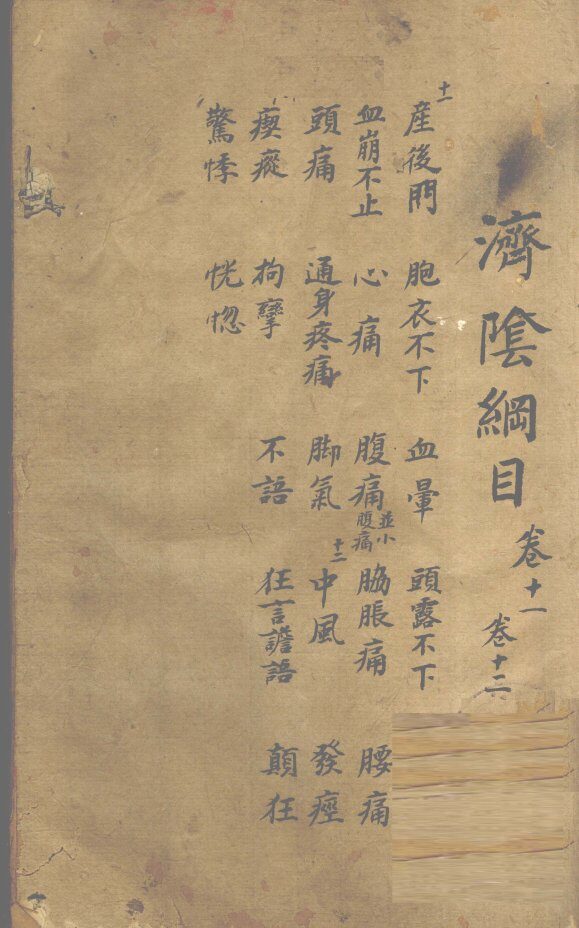 濟陰綱目 卷十一 卷十二
十一 產後門 胞衣不下 血暈 頭露不下
血崩不止 心痛 腹痛 並小腹痛 脇脹痛 腰痛
頭痛 通身疼痛 脚氣 十二 中風 發痙
瘈瘲 拘攣 不語 狂言譫語 顛狂
驚悸 恍惚